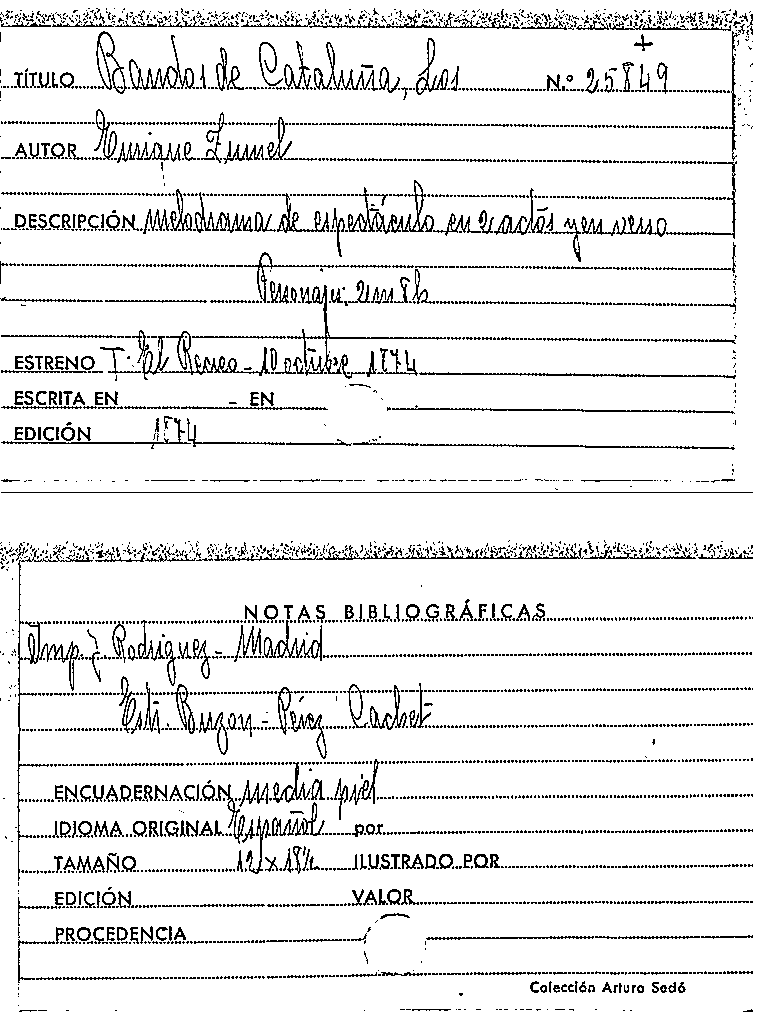 +
TÍTULO Bandos de Cataluña, Los N.º 25849
AUTOR Enrique Zumel
DESCRIPCIÓN melodrama de espectáculo en 2 actos y en verso
Personajes: 2m 8h
ESTRENO T. El Recreo - 10 octubre 1874
ESCRITA EN - EN
EDICIÓN 1874
NOTAS BIBLIOGRÁFICAS
Imp. J. Rodriguez - Madrid
Estr. Buzon - Pérez Cachet
ENCUADERNACIÓN media piel
IDIOMA ORIGINAL Español por
TAMAÑO 12 x 18½ ILUSTRADO POR
EDICIÓN VALOR
PROCEDENCIA
Colección Arturo Sedó